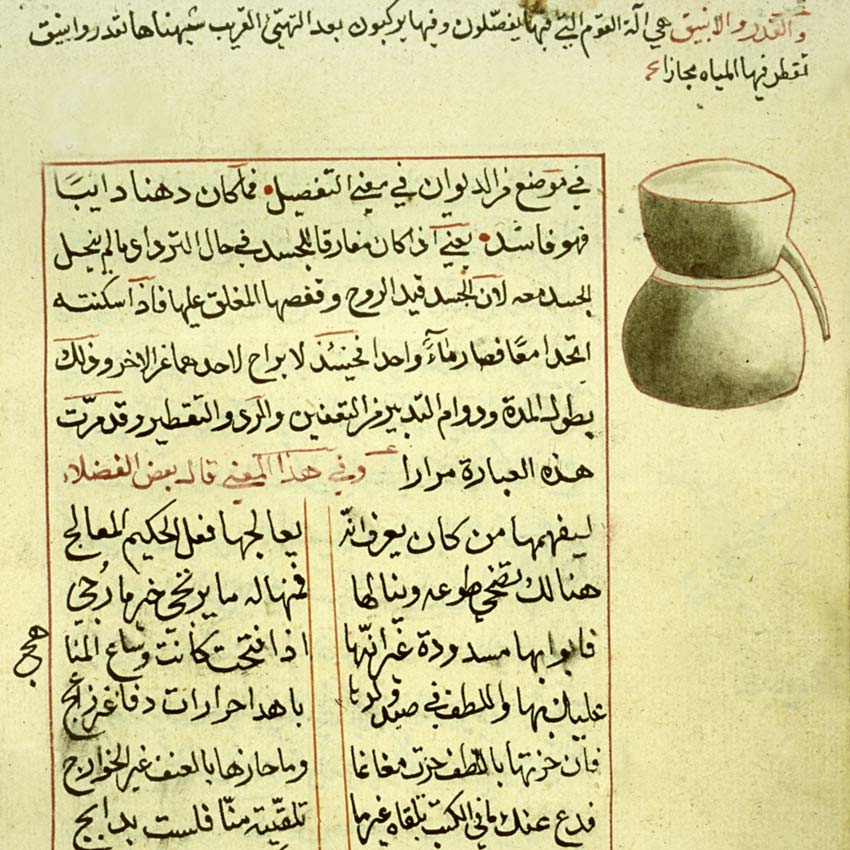 والقدر والانبيق هي الة القوم التي فيها يفصلون وفيها يركبون بعد التهبئ القريب شبهناها بقدر وانبيق
تقطر فيها المياه مجازا
في موضع من الديوان في معني التفصيل فما كان دهنا دايبا
فهو فاسد يعني اذا كان مفارقا للجسد في حال الترداد مالم ينحل
الجسد معه لان الجسد قيد الروح وقفصها المغلق عليها فاذا سكنته
اتحدا معا فصار ماء واحدا فحينئذ لا براح لاحدهما عن الاخر وذلك
بطول المدة ودوام التدبير من التعفين والرى والتقطير وقد مرت
هذه العبارة مرارا وفي هذا المعني قال بعض الفضلاء
ليفهمها من كان يعرف انه يعالجها فعل الحكيم المعالج
هنالك تضحي طوعه وينالها فمنها له ما يرتجي خير
فابوابها مسدودة غير انها اذا فتحت كانت وساع
هجي
عليك بها واللطف في بها هدا حرارات
فان حزتها باللطف حزت مغانما وما حازها بالعنف غير الخوارج
فدع عنك ما في الكتب تلقاه غير ما تلقيته منا فلست